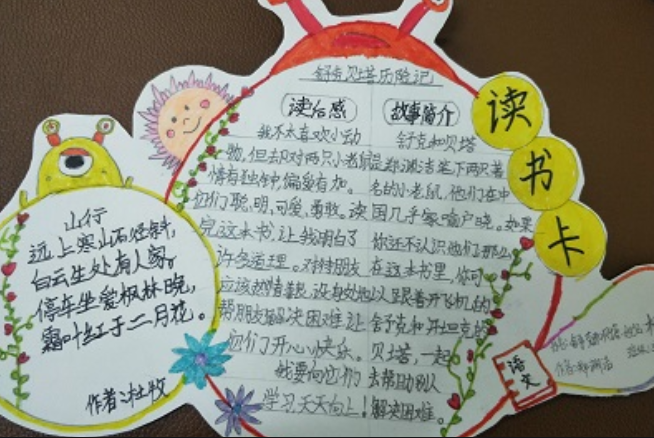 舒克贝塔历险记
读后感
我不太喜欢小动
物,但却对两只小老鼠
情有独钟,偏爱有加。
他们聪明,可爱,勇敢。读
完这本书,让我明白了
许多道理。对待朋友
应该热情善良,设身处地以
帮朋友解决困难,让
他们开心快乐。
我要向它们
学习,天天向上!
故事简介
舒克和贝塔
是郑渊洁笔下两只著
名的小老鼠,他们在中
国几乎家喻户晓。如果
你还不认识他们,那么
在这本书里,你可
跟着开飞机的
舒克和开坦克的
贝塔,一起
去帮助别人
解决困难。
读书卡
山行
远上寒山石径斜,
白云生处有人家。
停车坐爱枫林晚,
霜叶红于二月花。
作者:杜牧
语文
作者:郑渊洁